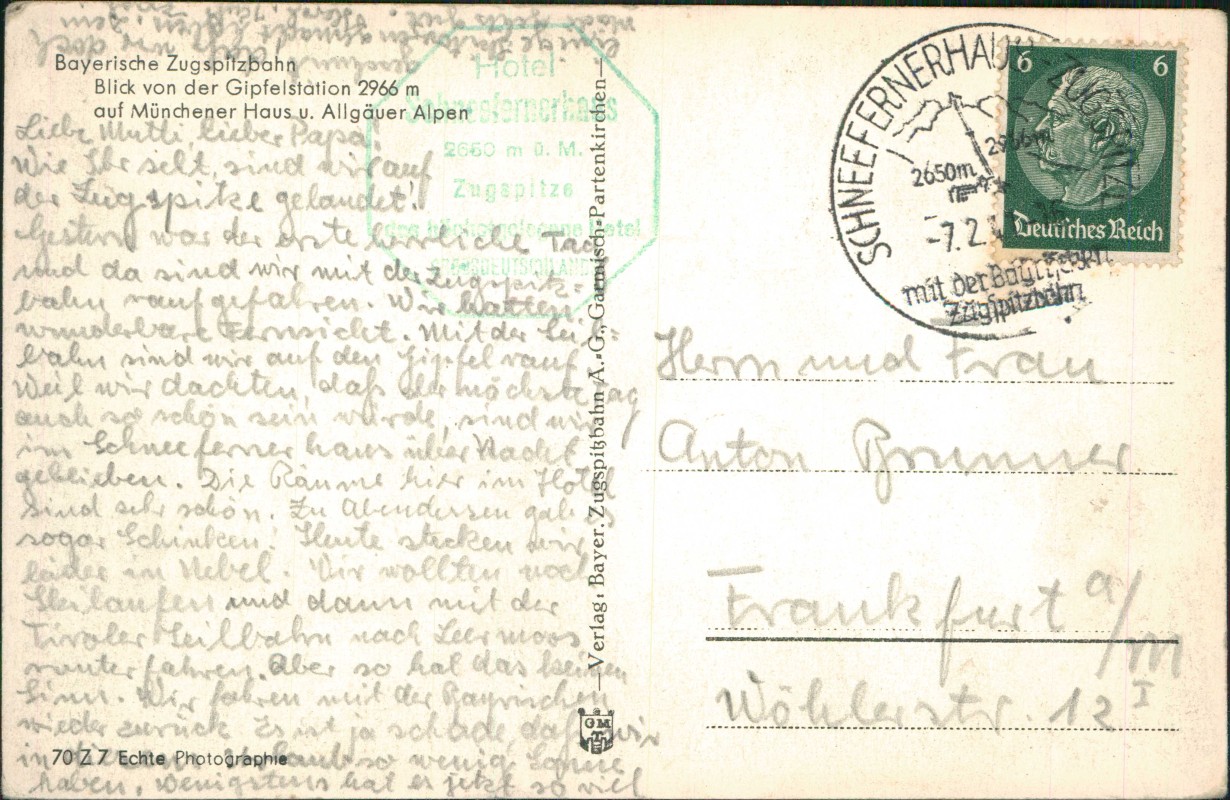 Bayerische Zugspitzbahn
Blick von der Gipfelstation 2966 m
auf Münchener Haus u. Allgäuer Alpen
Liebe Mutti, lieber Papa!
Wie Ihr seht, sind wir auf
der Zugspitze gelandet!
Gestern war der erste herrliche Tag
und da sind wir mit der Zugspitz=
bahn raufgefahren. Wir hatten
wunderbare Fernsicht. Mit der Seil=
bahn sind wir auf den Gipfel rauf.
Weil wir dachten, daß der nächste Tag
auch so schön sein würde, sind wir
im Schneeferner haus über Nacht
geblieben. Die Räume hier im Hotel
sind sehr schön. Zu Abendessen gab es
sogar Schinken! Heute stecken wir
leider im Nebel. Wir wollten noch
Skilaufen und dann mit der
Tiroler Seilbahn nach Leermoos
runterfahren. Aber so hat das keinen
Sinn. Wir fahren mit der Bayrischen
wieder zurück. Es ist ja schade daß wir
in Urlaub so wenig Sonne
haben. Wenigstens hat es jetzt so viel
70 Z 7 Echte Photographie
Hotel
Schneefernerhaus
2650 m ü. M.
Zugspitze
das höchstgelegene Hotel
GROSSDEUTSCHLANDS
Verlag: Bayer. Zugspitzbahn A.-G., Garmisch-Partenkirchen
GMT
SCHNEEFERNERHAUS-ZUGSPITZE
2966m
2650m
-7.2.
mit der Bayrischen
Zugspitzbahn
6 6
Deutsches Reich
Herrn und Frau
Anton Brunner
Frankfurt a/M
Wöhlerstr 12 I